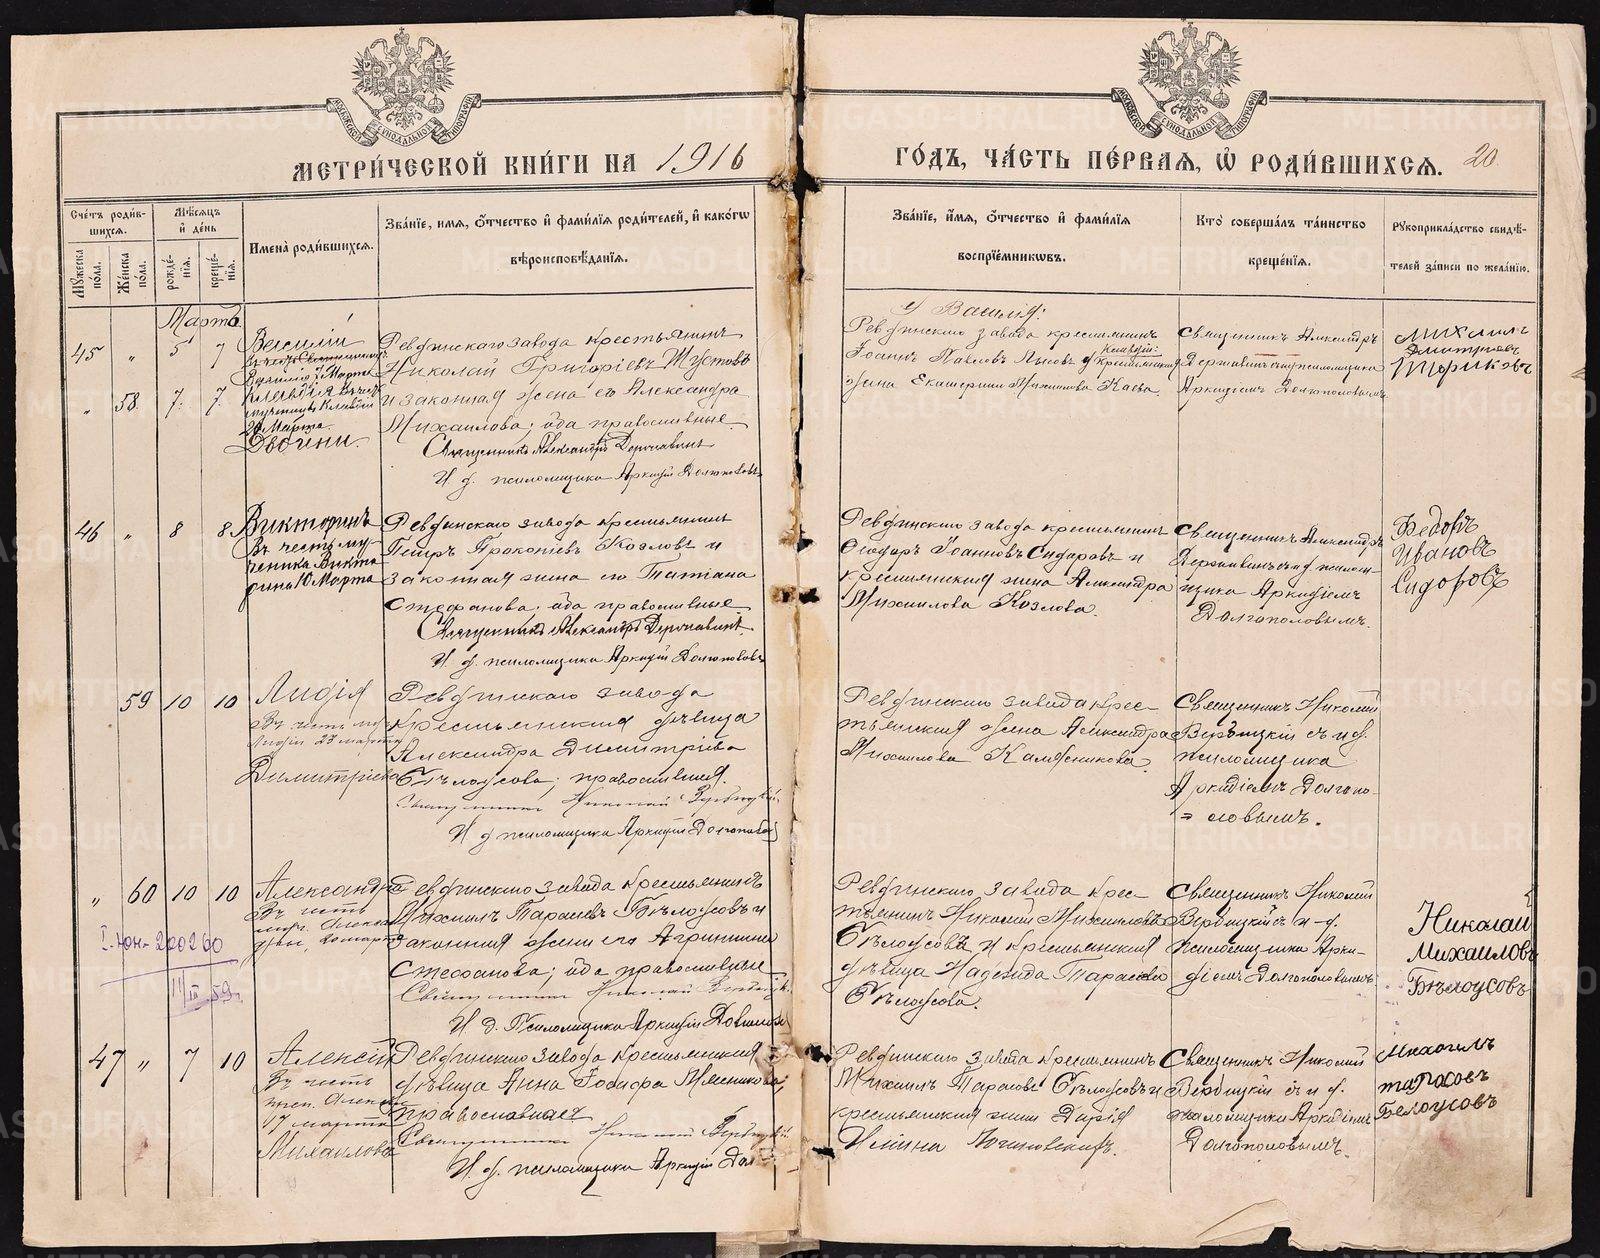 МЕТРИ́ЧЕСКОЙ КНИ́ГИ НА 1916
ГО́ДЪ, ЧА́СТЬ ПЕ́РВАѦ, Ѽ РОДИ́ВШИХСѦ. 20
МОСКОВСКОЙ СѴНОДАЛЬНОЙ ТИПОГРАФІИ
МОСКОВСКОЙ СѴНОДАЛЬНОЙ ТИПОГРАФІИ
Сче́тъ роди́в-
шихсѧ.
Мꙋ́жеска по́ла.
Же́нска по́ла.
Мѣ́сѧцъ
и҆ де́нь
рожде́-
нїѧ.
креще́-
нїѧ.
Имена̀ роди́вшихсѧ.
Зва́нїе, и҆мѧ, ѻ҆́тчество и҆ фами́лїѧ роди́телей, и҆ како́гѡ
вѣроисповѣ́данїѧ.
Зва́нїе, и҆́мѧ, ѻ҆́тчество и҆ фами́лїѧ
воспрїе́мникѡвъ.
Кто̀ соверша́лъ та́инство
креще́нїѧ.
Рꙋкоприкла́дство свидѣ́-
телей за́писи по жела́нїю.
Мартъ
45 " 5 7
Василій
" 58 7. 7.
20 Марта.
Двойни.
Ревдинскаго завода крестьянинъ
Николай Григоріевъ Шустовъ
и законная жена его Александра
Михаилова; оба православные
Священникъ Александръ Державинъ
И. д. псаломщика Аркадій Долгополовъ
у Василія:
Ревдинскаго завода крестьянинъ
Іоаннъ Павловъ
жена Екатерина Михаилова
Священникъ Александръ
Державинъ съ и д псаломщика
Аркадіемъ Долгополовымъ
Михаилъ
Дмитріевъ
46 " 8 8
Викторинъ
въ честь му-
ченика Викто
рина 10 Марта
Ревдинскаго завода крестьянинъ
Петръ Прокопіевъ Козловъ и
законная жена его Татіана
Стефанова; оба православные
Священникъ Александръ Державинъ.
И. д. псаломщика Аркадій Долгополовъ
Ревдинскаго завода крестьянинъ
Ѳеодоръ Іоанновъ Сидоровъ и
крестьянская жена Александра
Михаилова Козлова.
Священникъ Александръ
Державинъ съ и д. псалом-
щика Аркадіемъ
Долгополовымъ.
Ѳедоръ
Ивановъ
Сидоровъ
59 10 10
Лидія
Въ честь муч.
Лидіи 23 марта
Димитріева
Ревдинскаго завода
крестьянская дѣвица
Александра Димитріева
Бѣлоусова; православная.
Священникъ Николай Вербицкій.
И д псаломщика Аркадій Долгополовъ
Ревдинскаго завода крес-
тьянская жена Александра
Михаилова
Священникъ Николай
Вербицкій съ и д.
псаломщика
Аркадіемъ Долгопо-
= ловымъ.
" 60 10 10
Александра
Въ честь
муч. Алекса
Ревдинскаго завода крестьянинъ
Михаилъ Тарасіевъ Бѣлоусовъ и
законная жена его Агриппина
Стефанова; оба православные
Священникъ Николай Вербицкій.
И. д. Псаломщика Аркадій Долгополовъ
Ревдинскаго завода крес-
тьянинъ Николай Михаиловъ
Бѣлоусовъ и крестьянская
дѣвица Надежда Тарасіева
Бѣлоусова.
Священникъ Николай
Вербицкій съ и д.
псаломщика Арка-
діемъ Долгополовымъ
Николай
Михаиловъ
Бѣлоусовъ
47 " 7 10
Алексій
Въ честь
преп. Алексія
17 марта
Михаиловъ
Ревдинскаго завода крестьянская
дѣвица Анна
православная
Священникъ Николай Вербицкій.
И. д. псаломщика Аркадій Дол
Ревдинскаго завода крестьянинъ
Михаилъ Тарасовъ Бѣлоусовъ и
крестьянская жена Дарія
Священникъ Николай
Вербицкій съ и д.
псаломщика Аркадіемъ
Долгополовымъ.
Михаилъ
тарасовъ
Белоусовъ
METRIKI.GASO-URAL.RU